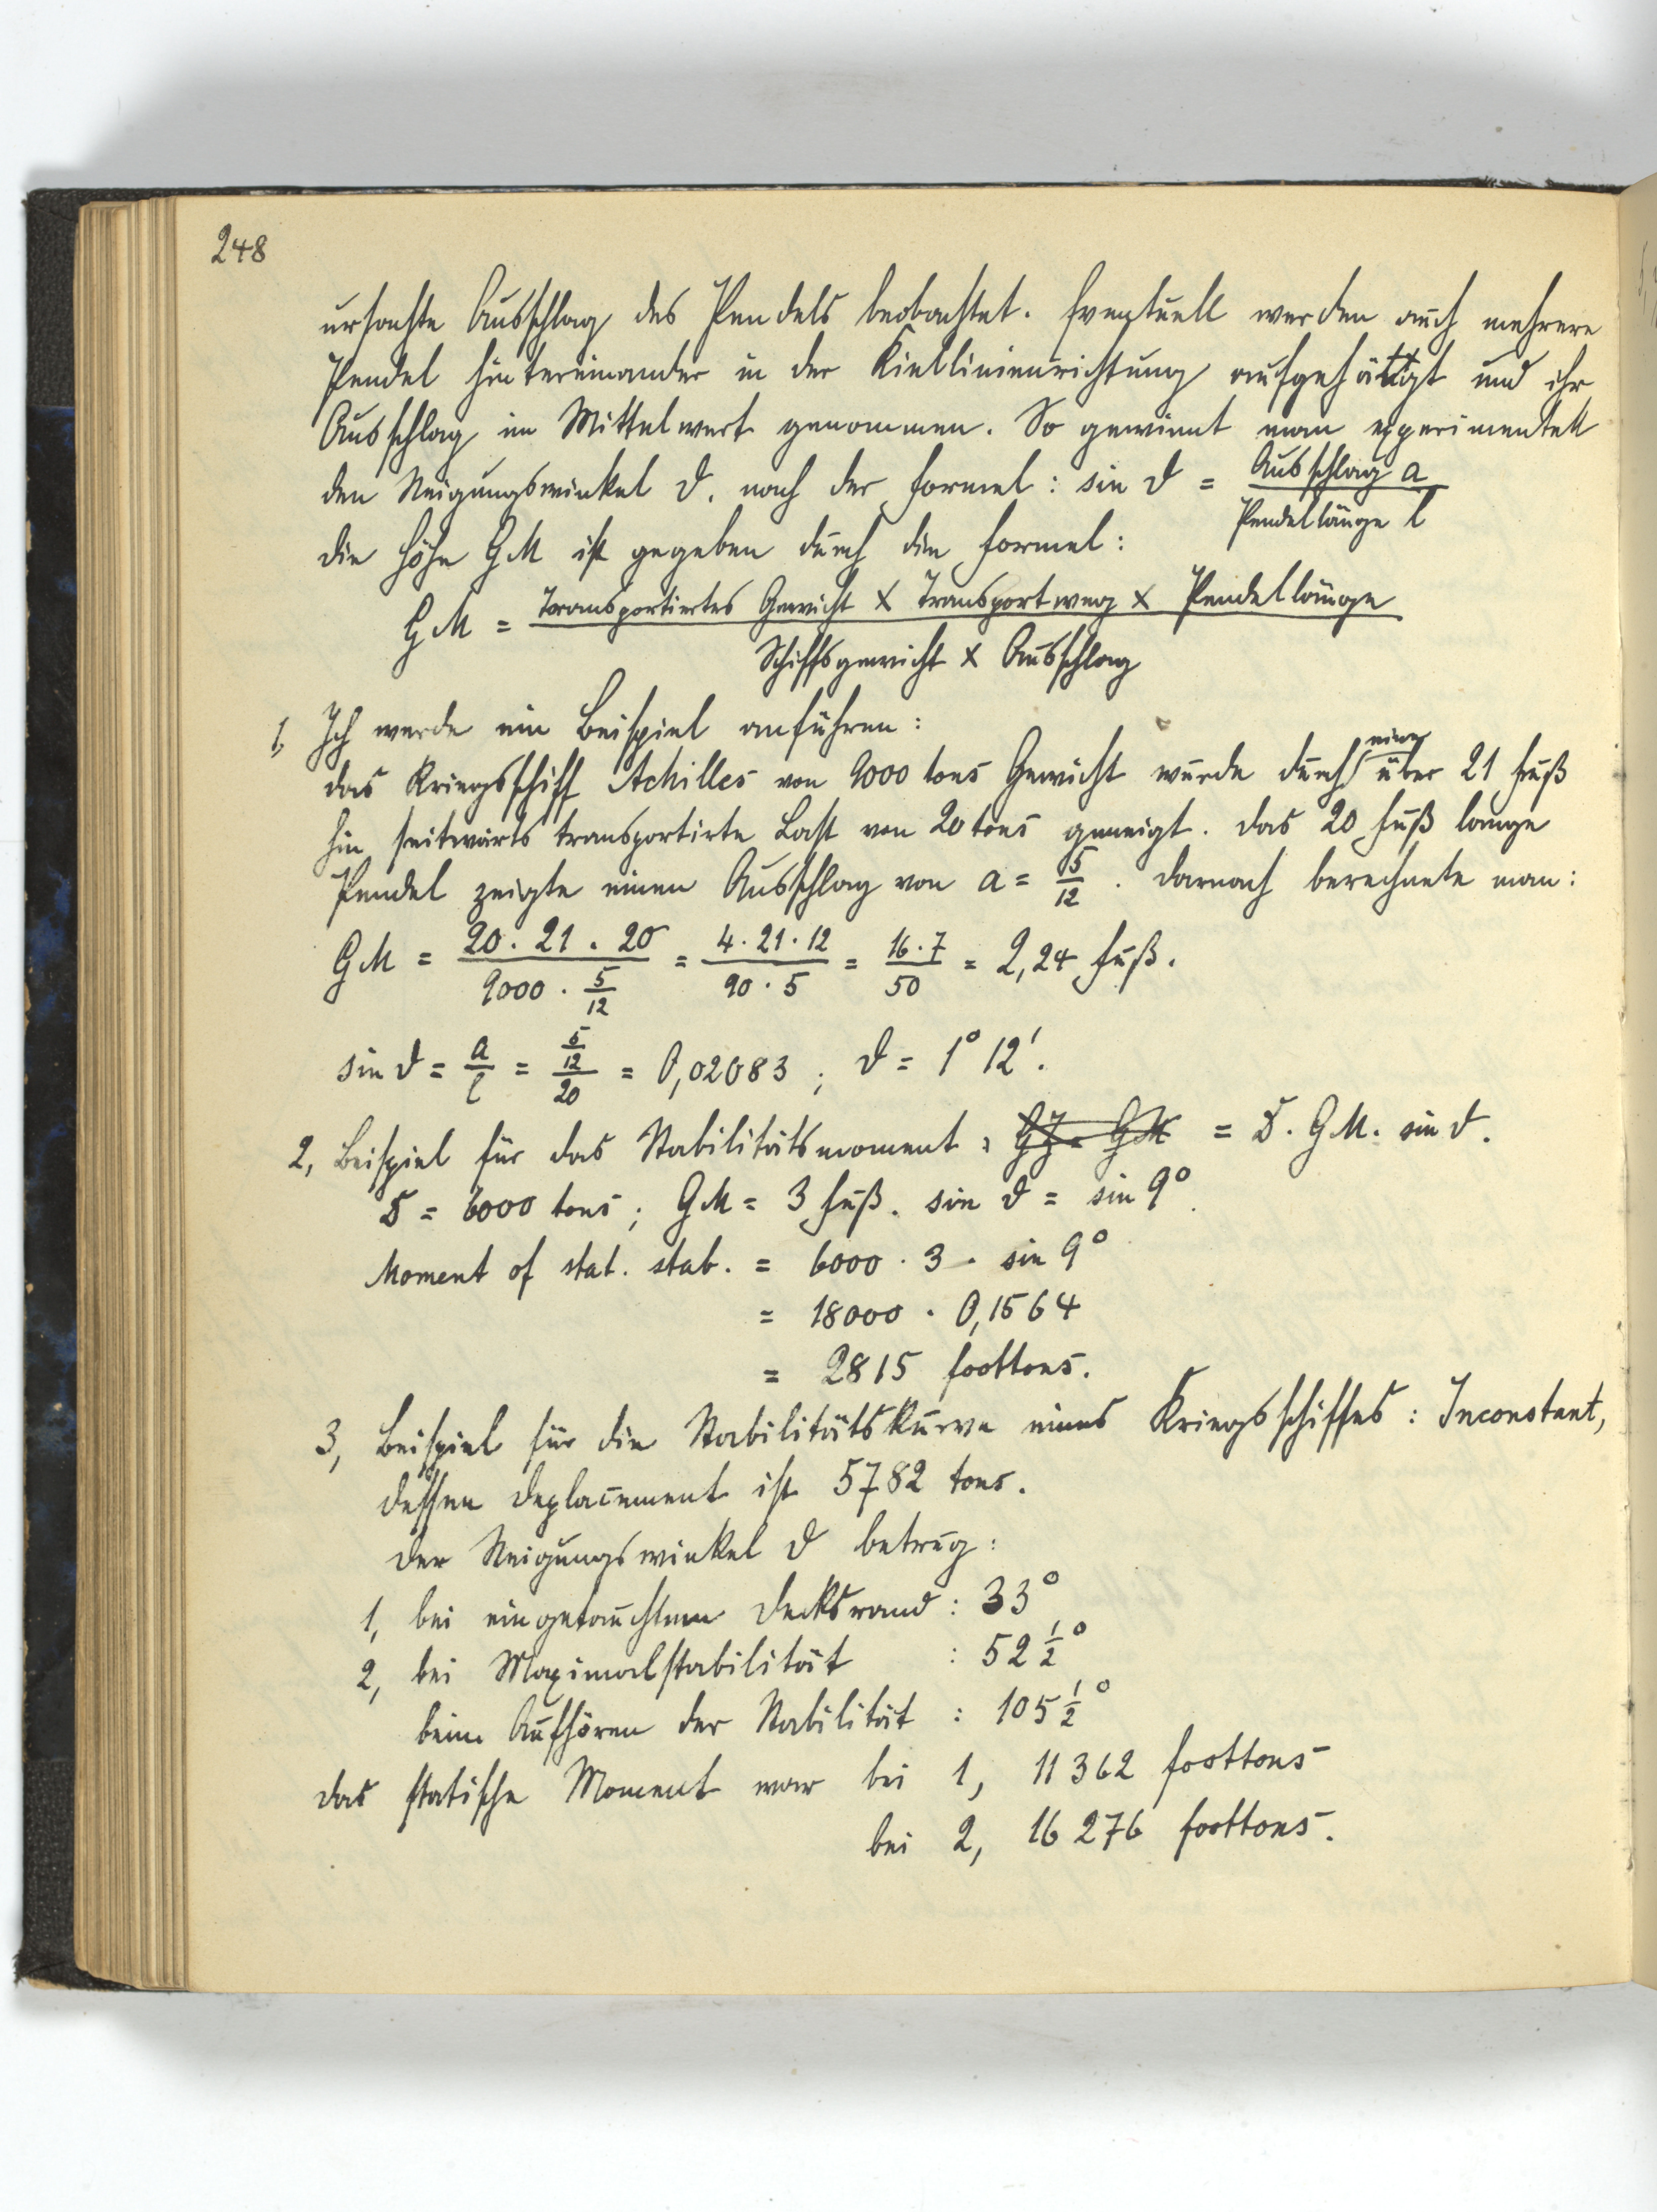 248
ursachte Ausschlag des Pendels beobachtet. Eventuell werden auch mehrere
Pendel hintereinander in der Kiellinienrichtung aufgehängt und ihr
Ausschlag im Mittelwert genommen. So gewinnt man experimentell
den Neigungswinkel ϑ. nach der Formel: sin ϑ = Ausschlag a / Pendellänge l
die Höhe GM ist gegeben durch die Formel:
GM = Transportiertes Gewicht × Transportweg × Pendellänge / Schiffsgewicht × Ausschlag
1, Ich werde ein Beispiel anführen:
das Kriegsschiff Achilles von 9000 tons Gewicht wurde durch eine über 21 Fuß
hin seitwärts transportirte Last von 20 tons geneigt. das 20 Fuß lange
Pendel zeigte einen Ausschlag von a = 5/12. darnach berechnete man:
GM = 20 · 21 · 20 / 9000 · 5/12 = 4 · 21 · 12 / 90 · 5 = 16 · 7 / 50 = 2,24 Fuß.
sin ϑ = a/l = 5/12 / 20 = 0,02083; ϑ = 1° 12'.
2, Beispiel für das Stabilitätsmoment: = D. GM. sin ϑ.
D = 6000 tons; GM = 3 Fuß. sin ϑ = sin 9°.
Moment of stat. stab. = 6000 · 3 · sin 9°
= 18000 · 0,1564
= 2815 foottons.
3, Beispiel für die Stabilitätskurve eines Kriegsschiffes: Inconstant,
dessen Deplacement ist 5782 tons.
der Neigungswinkel ϑ betrug:
1, bei eingetauchtem Decksrand: 33°
2, bei Maximalstabilität : 52 1/2°
beim Aufhören der Stabilität : 105 1/2°
das statische Moment war bei 1, 11362 foottons
bei 2, 16276 foottons.